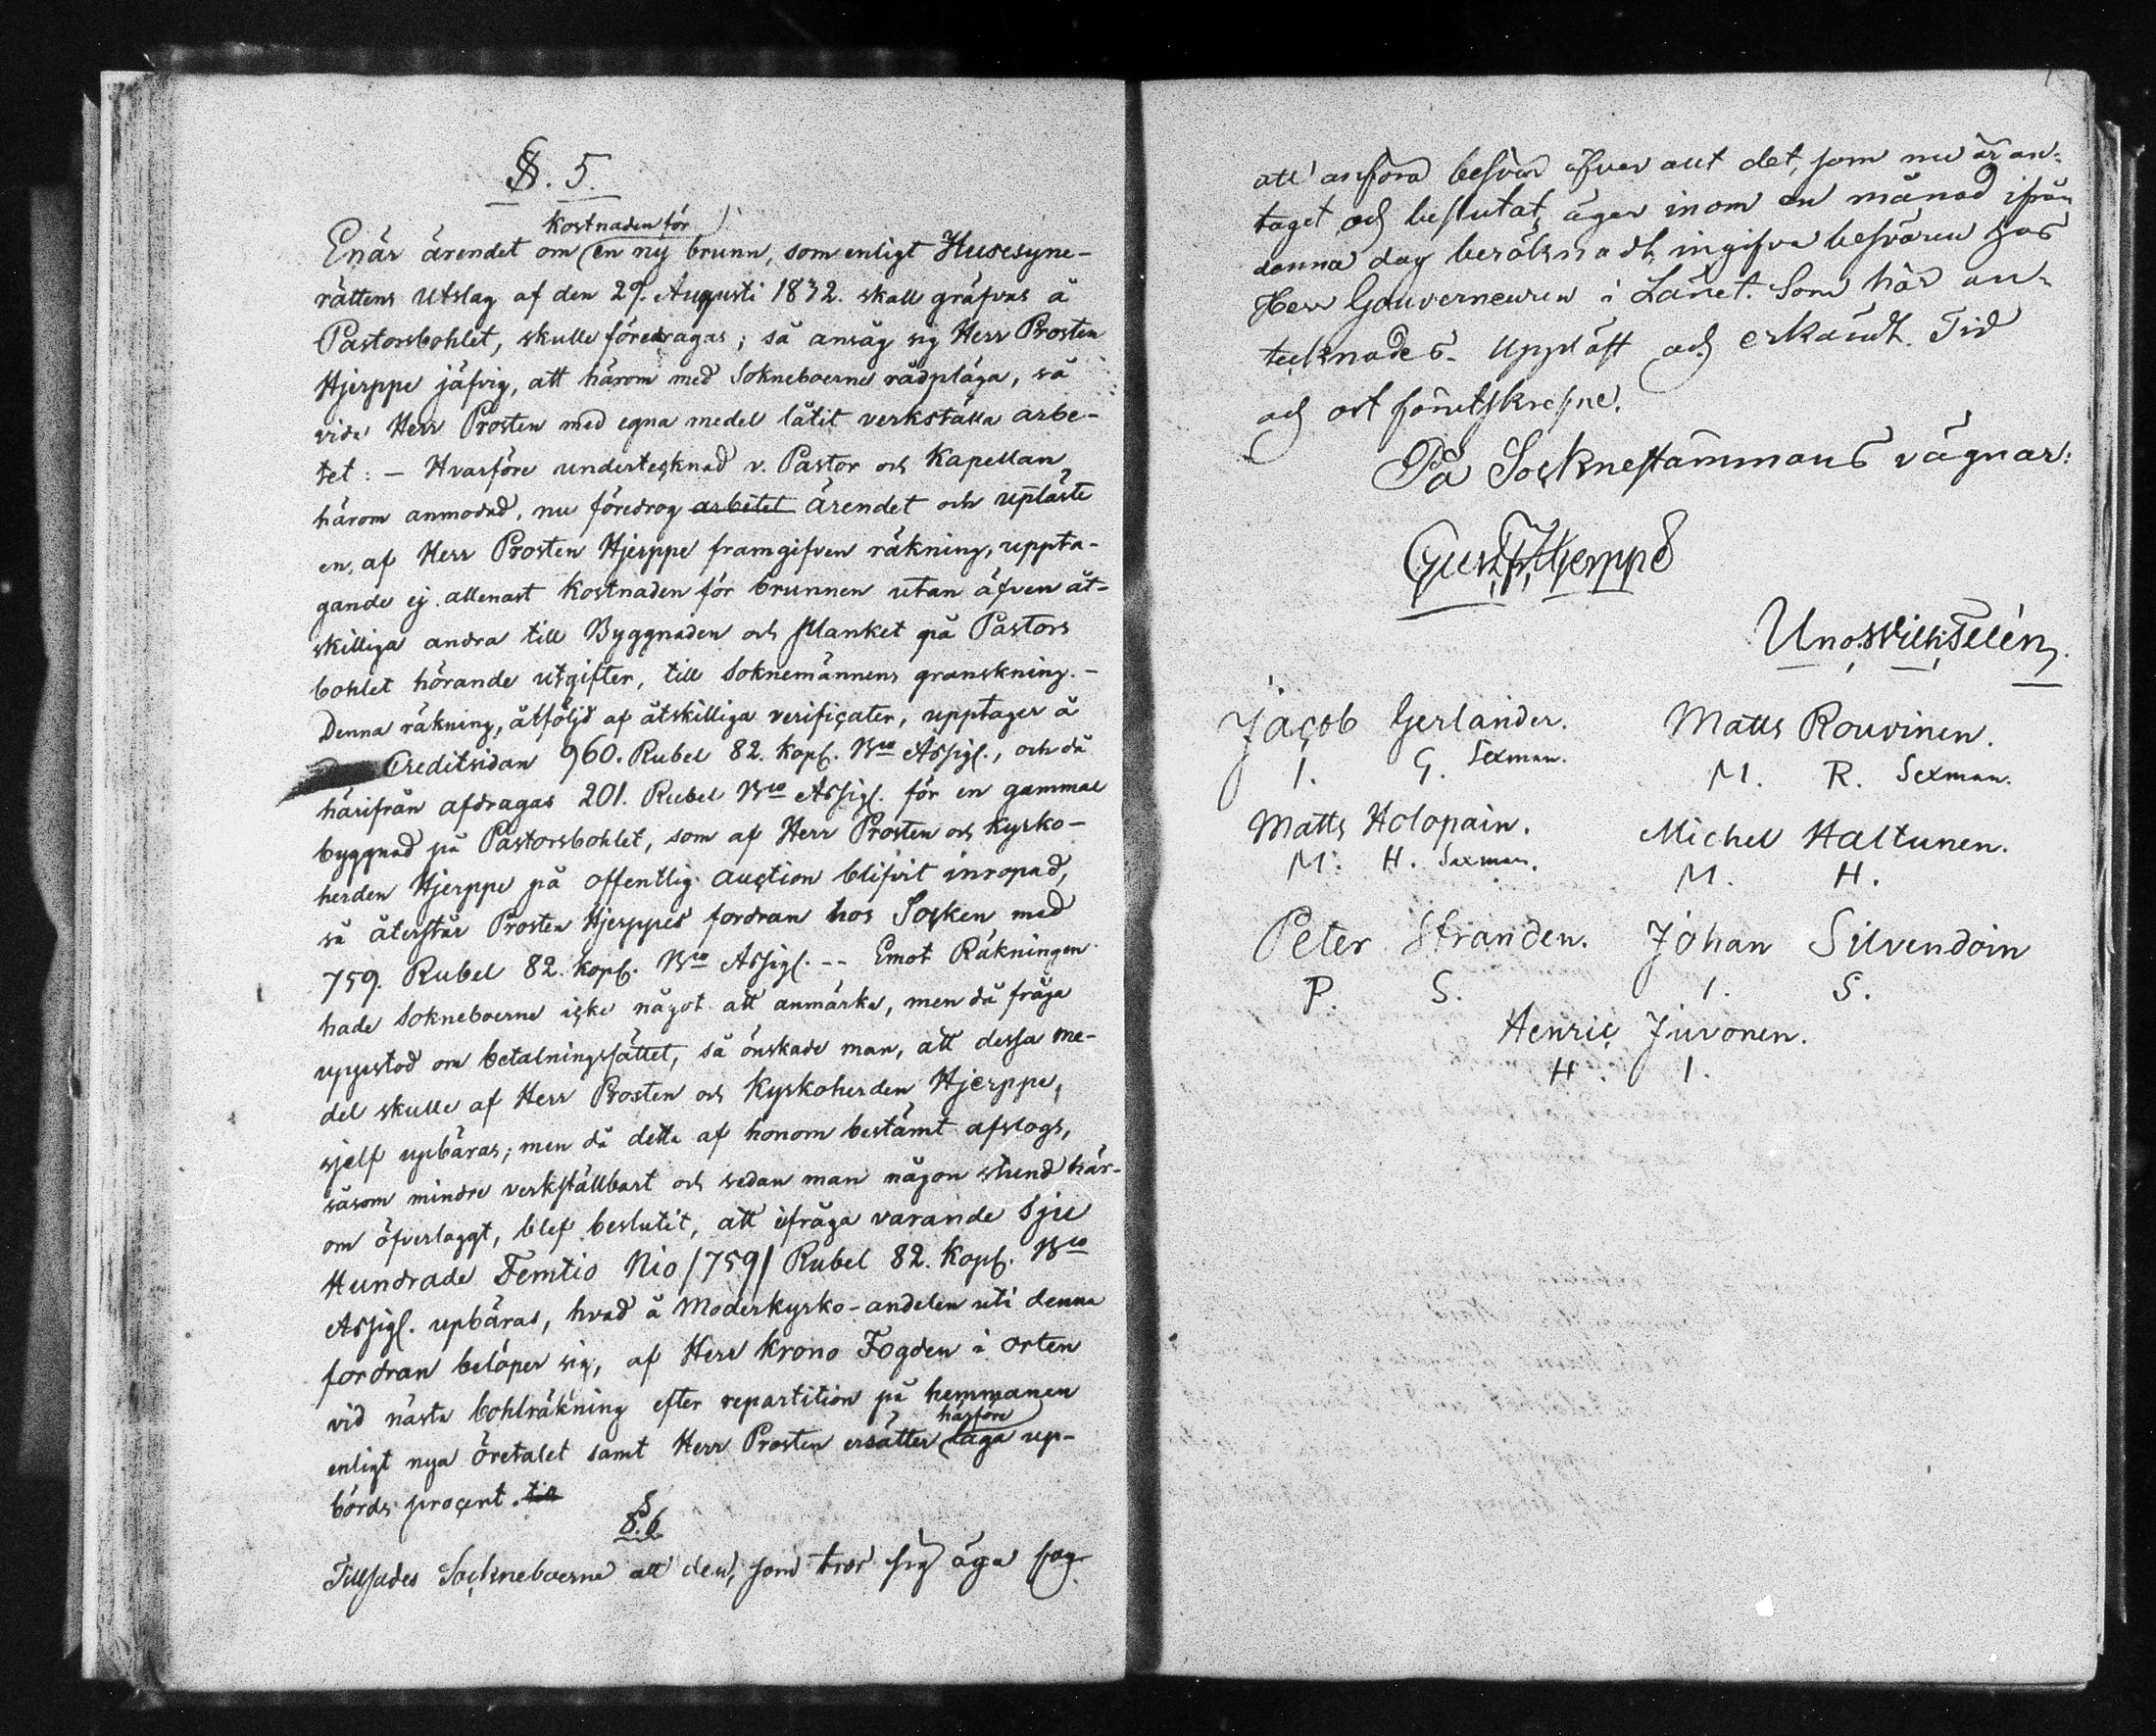 §. 5.
kostnaden för
Enär ärendet om en ny brunn, som enligt Husesyne-
rättens Utslag af den 29. Augusti 1832. skall gräfvas å
Pastorsbohlet, skulle föredragas; så ansåg sig Herr Prosten
Hjerppe jäfvig, att härom med Sokneboerne rådpläga, så
vida Herr Prosten med egna medel låtit verkställa arbe-
tet: - Hvarföre undertecknad v. Pastor och Kapellan
härom anmodad, nu föredrog arbetet ärendet och upläste
en, af Herr Prosten Hjerppe framgifven räkning, uppta-
gande ej allenast kostnaden för brunnen utan äfven åt-
skilliga andra till Byggnaden och Planket på Pastors
bohlet hörande utgifter, till Soknemännens granskning. -
Denna räkning, åtföljd af åtskilliga verificater, upptager å
Creditsidan 960. Rubel 82. kop. Bco Assign., och då
härifrån afdragas 201. Rubel Bco Assign. för en gammal
byggnad på Pastorsbohlet, som af Herr Prosten och Kyrko-
herden Hjerppe på offentlig auction blifvit inropad,
så återstår Prosten Hjerppes fordran hos Socken med
759. Rubel 82. kop. Bco Assign. -- Emot Räkningen
hade Sokneboerne icke något att anmärka, men då fråga
uppstod om betalningssättet, så önskade man, att dessa me-
del skulle af Herr Prosten och Kyrkoherden Hjerppe,
sjelf upbäras; men då detta af honom bestämt afslogs,
såsom mindre verkställbart och sedan man någon stund här-
om öfverlaggt, blef beslutit, att ifråga varande Sju
Hundrade Femtio Nio /759/ Rubel 82. Kop. Bco
Assign. upbäras, hvad å Moderkyrko-andelen uti denna
fordran belöper sig, af Herr Krono Fogden i orten
vid nästa bohlräkning efter repartition på hemmanen
enligt nya öretalet samt Herr Prosten ersätter
härföre
laga up-
börds procent. till
§. 6
Tillsades Sockneboerne att den, som tror sig äga fog
att anföra besvär öfver allt det, som nu är an-
taget och beslutat, äger inom en månad ifrån
denna dag beräknadt, ingifva besvären hos
Herr Gouverneuren i Länet. Som här an-
tecknades. Uppläst och erkändt. Tid
och ort förutskrefne.
På Socknestämmans vägnar:
Gust. Fr. Hjerppe
Uno Wilh. Telén
Jacob Gerlander.
I. G. Sexman.
Matts Rouvinen.
M. R. Sexman.
Matts Holopain.
M. H. Sexman.
Michel Haltunen.
M. H.
Peter Stranden.
P. S.
Johan Silvendoin
I. S.
Henric Juvonen.
H. I.